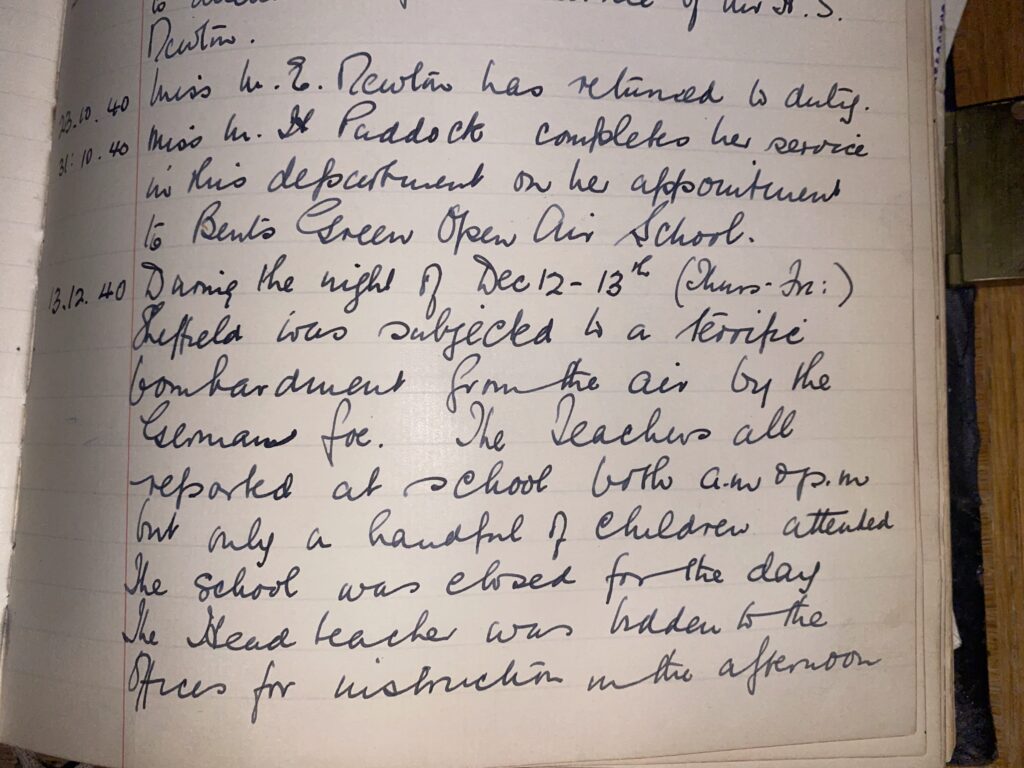 of Mr H. S.
Newton.
23.10.40 Miss M. E. Newton has returned to duty.
31.10.40 Miss M. H Paddock completes her service
in this department on her appointment
to Bents Green Open Air School.
13.12.40 During the night of Dec 12-13th (Thurs-Fri:)
Sheffield was subjected to a terrific
bombardment from the air by the
German foe. The Teachers all
reported at school both a.m & p.m
but only a handful of children attended
The school was closed for the day
The Head teacher was bidden to the
Offices for instruction in the afternoon